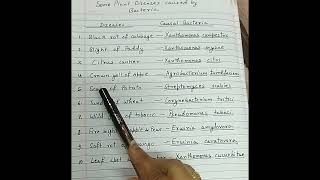 Some Plant Diseases caused by
Bacteria
Diseases Causal Bacteria
1. Black rot of cabbage - Xanthomonas campestris
2. Blight of Paddy - Xanthomonas oryzae
3. Citrus canker - Xanthomonas citri
4. Crown gall of apple - Agrobacterium tumefaciens
5. of Potato - Streptomyces scabies
6. wheat - Corynebacterium tritici
7. Wild of tobacco - Pseudomonas tabaci
8. Fire - Erwinia amylovora
9. Soft rot - Erwinia carotovora
10. Leaf - Xanthomonas